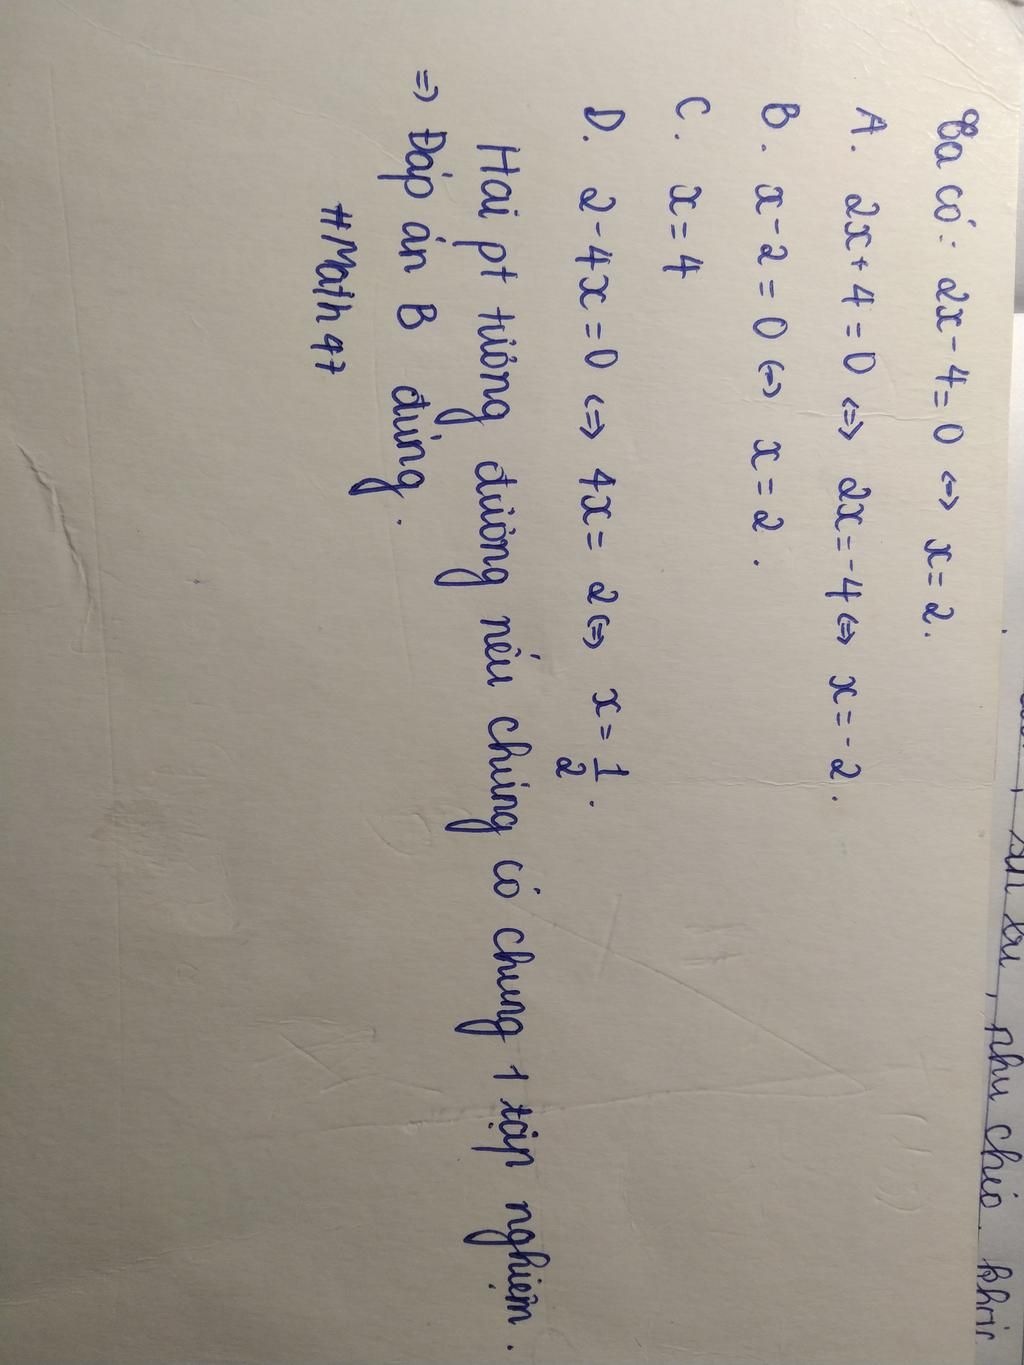 Ta có: 2x - 4 = 0 <=> x = 2.
A. 2x + 4 = 0 <=> 2x = -4 <=> x = -2.
B. x - 2 = 0 <=> x = 2.
C. x = 4
D. 2 - 4x = 0 <=> 4x = 2 <=> x = 1/2.
Hai pt tương đương nếu chúng có chung 1 tập nghiệm.
=> Đáp án B đúng.
#Math 47